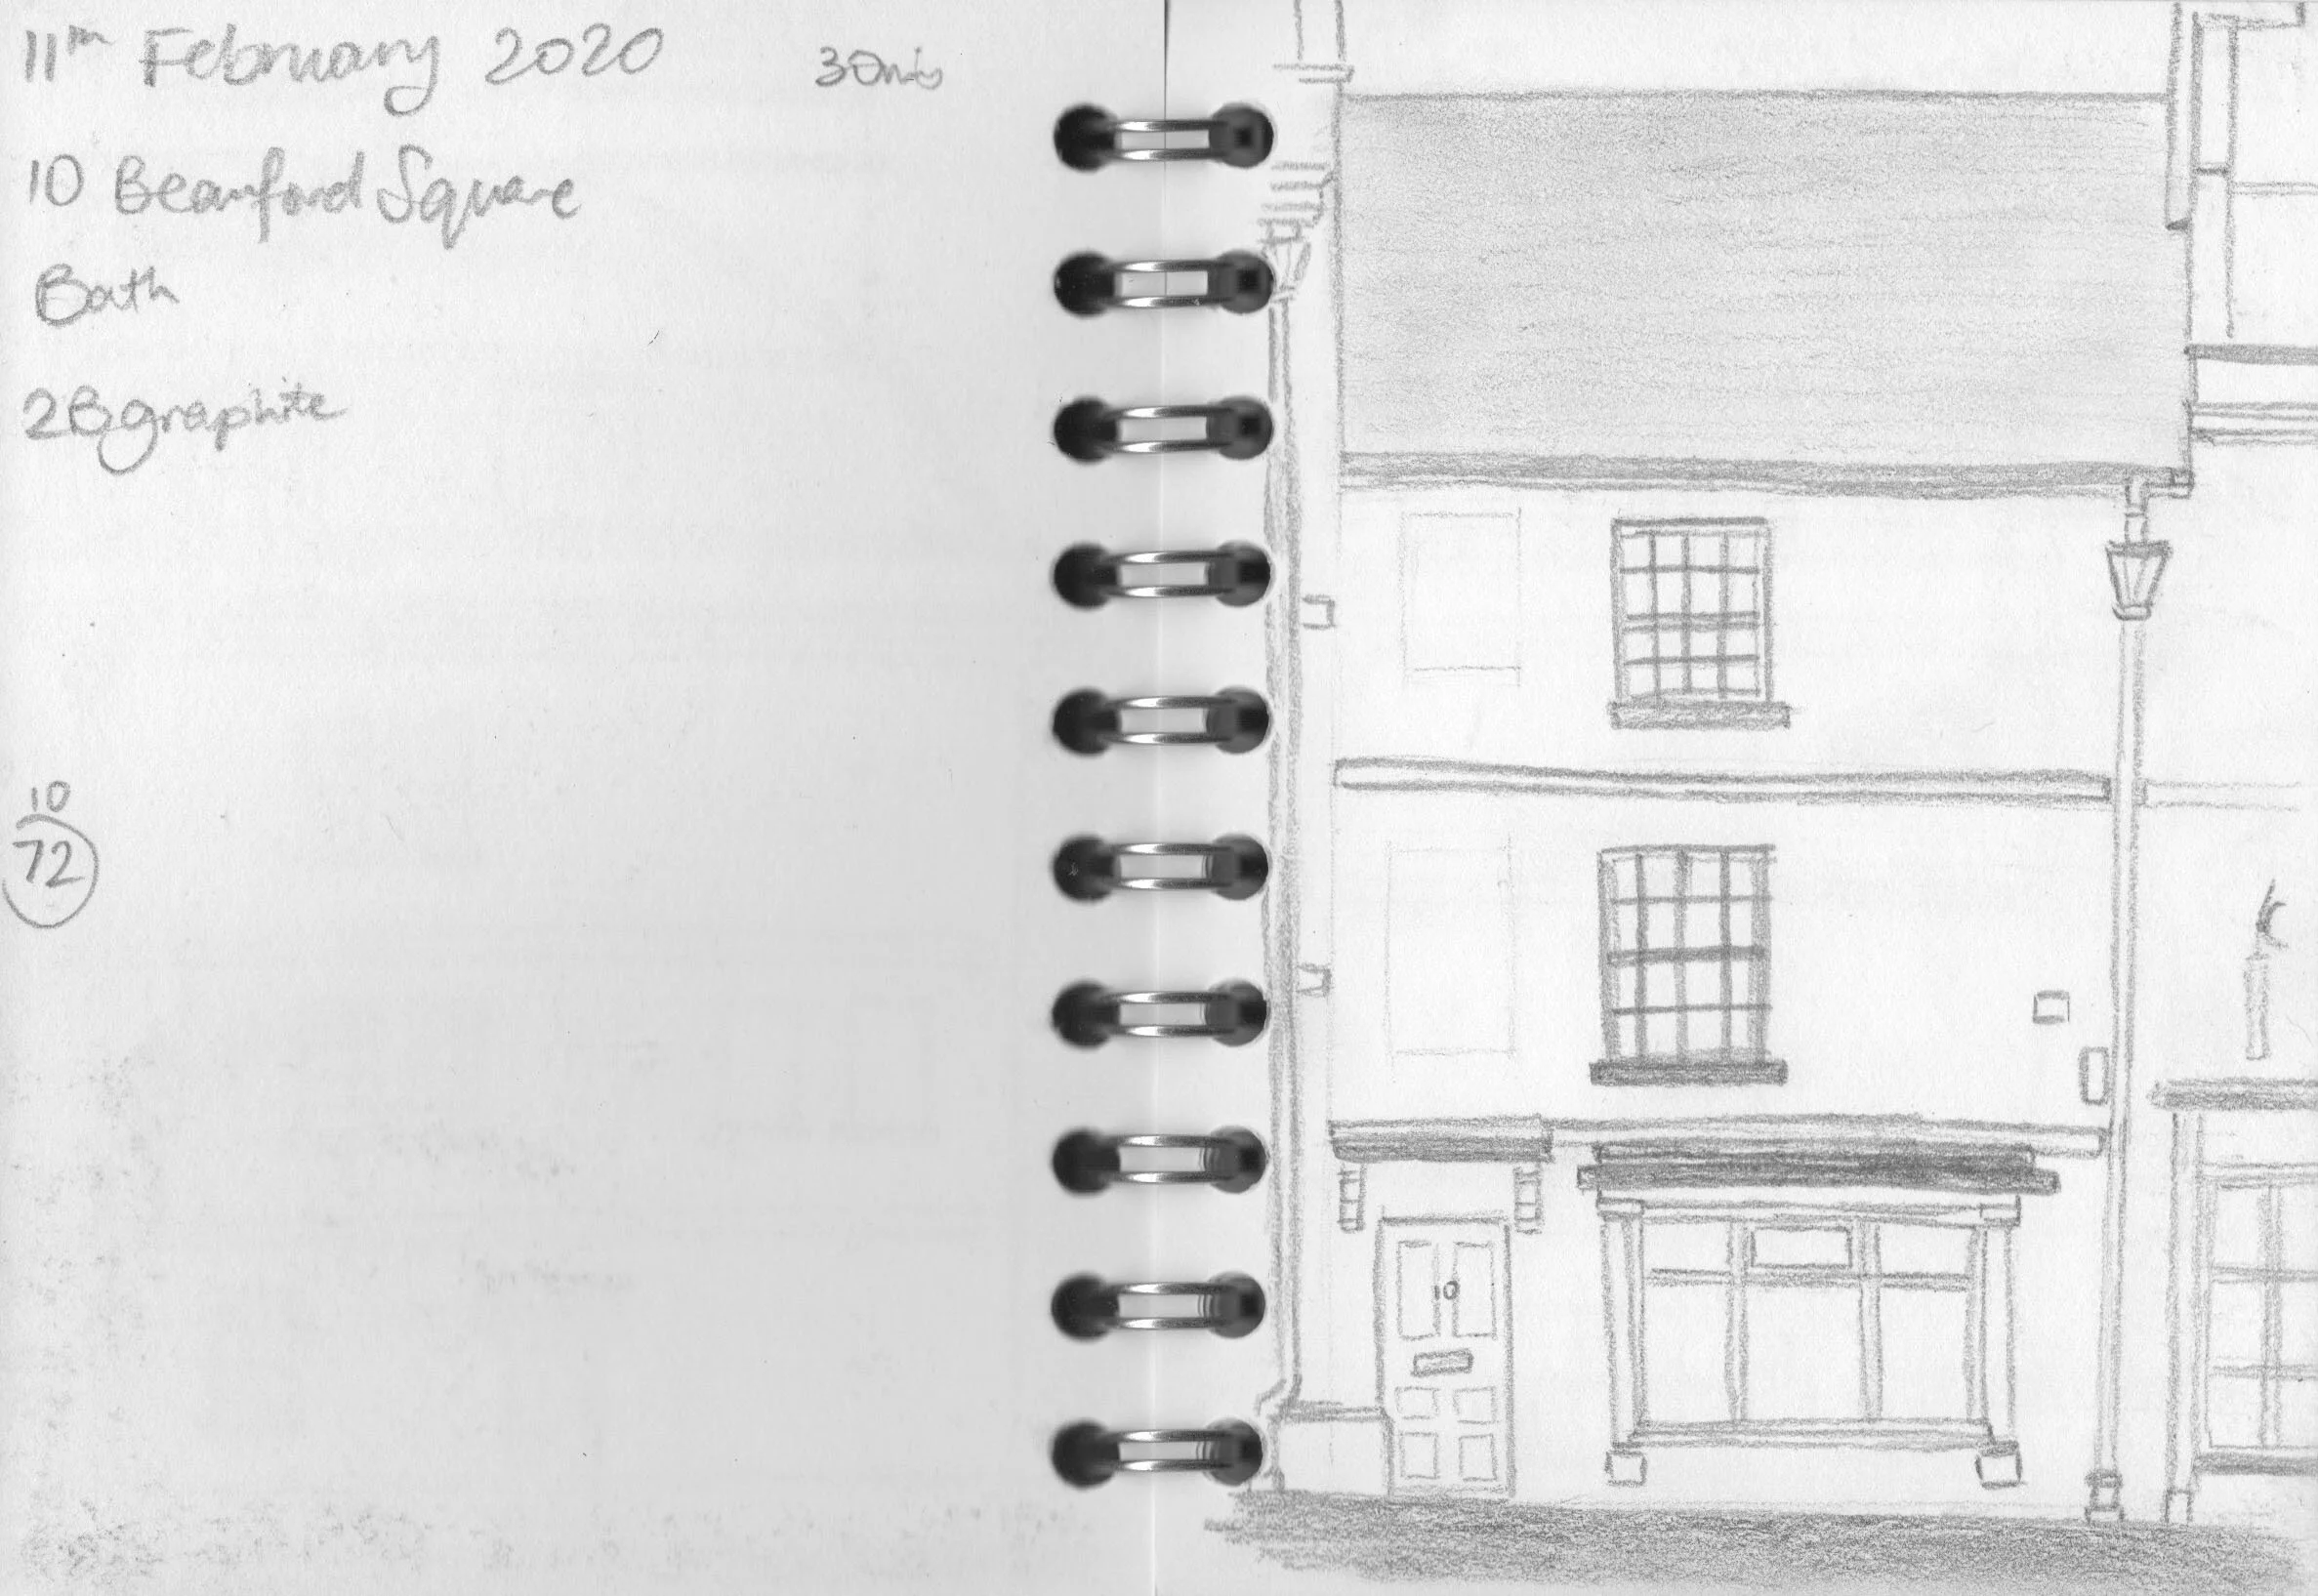 11th February 2020 30mis
10 Beauford Square
Bath
2B graphite
10
72
10